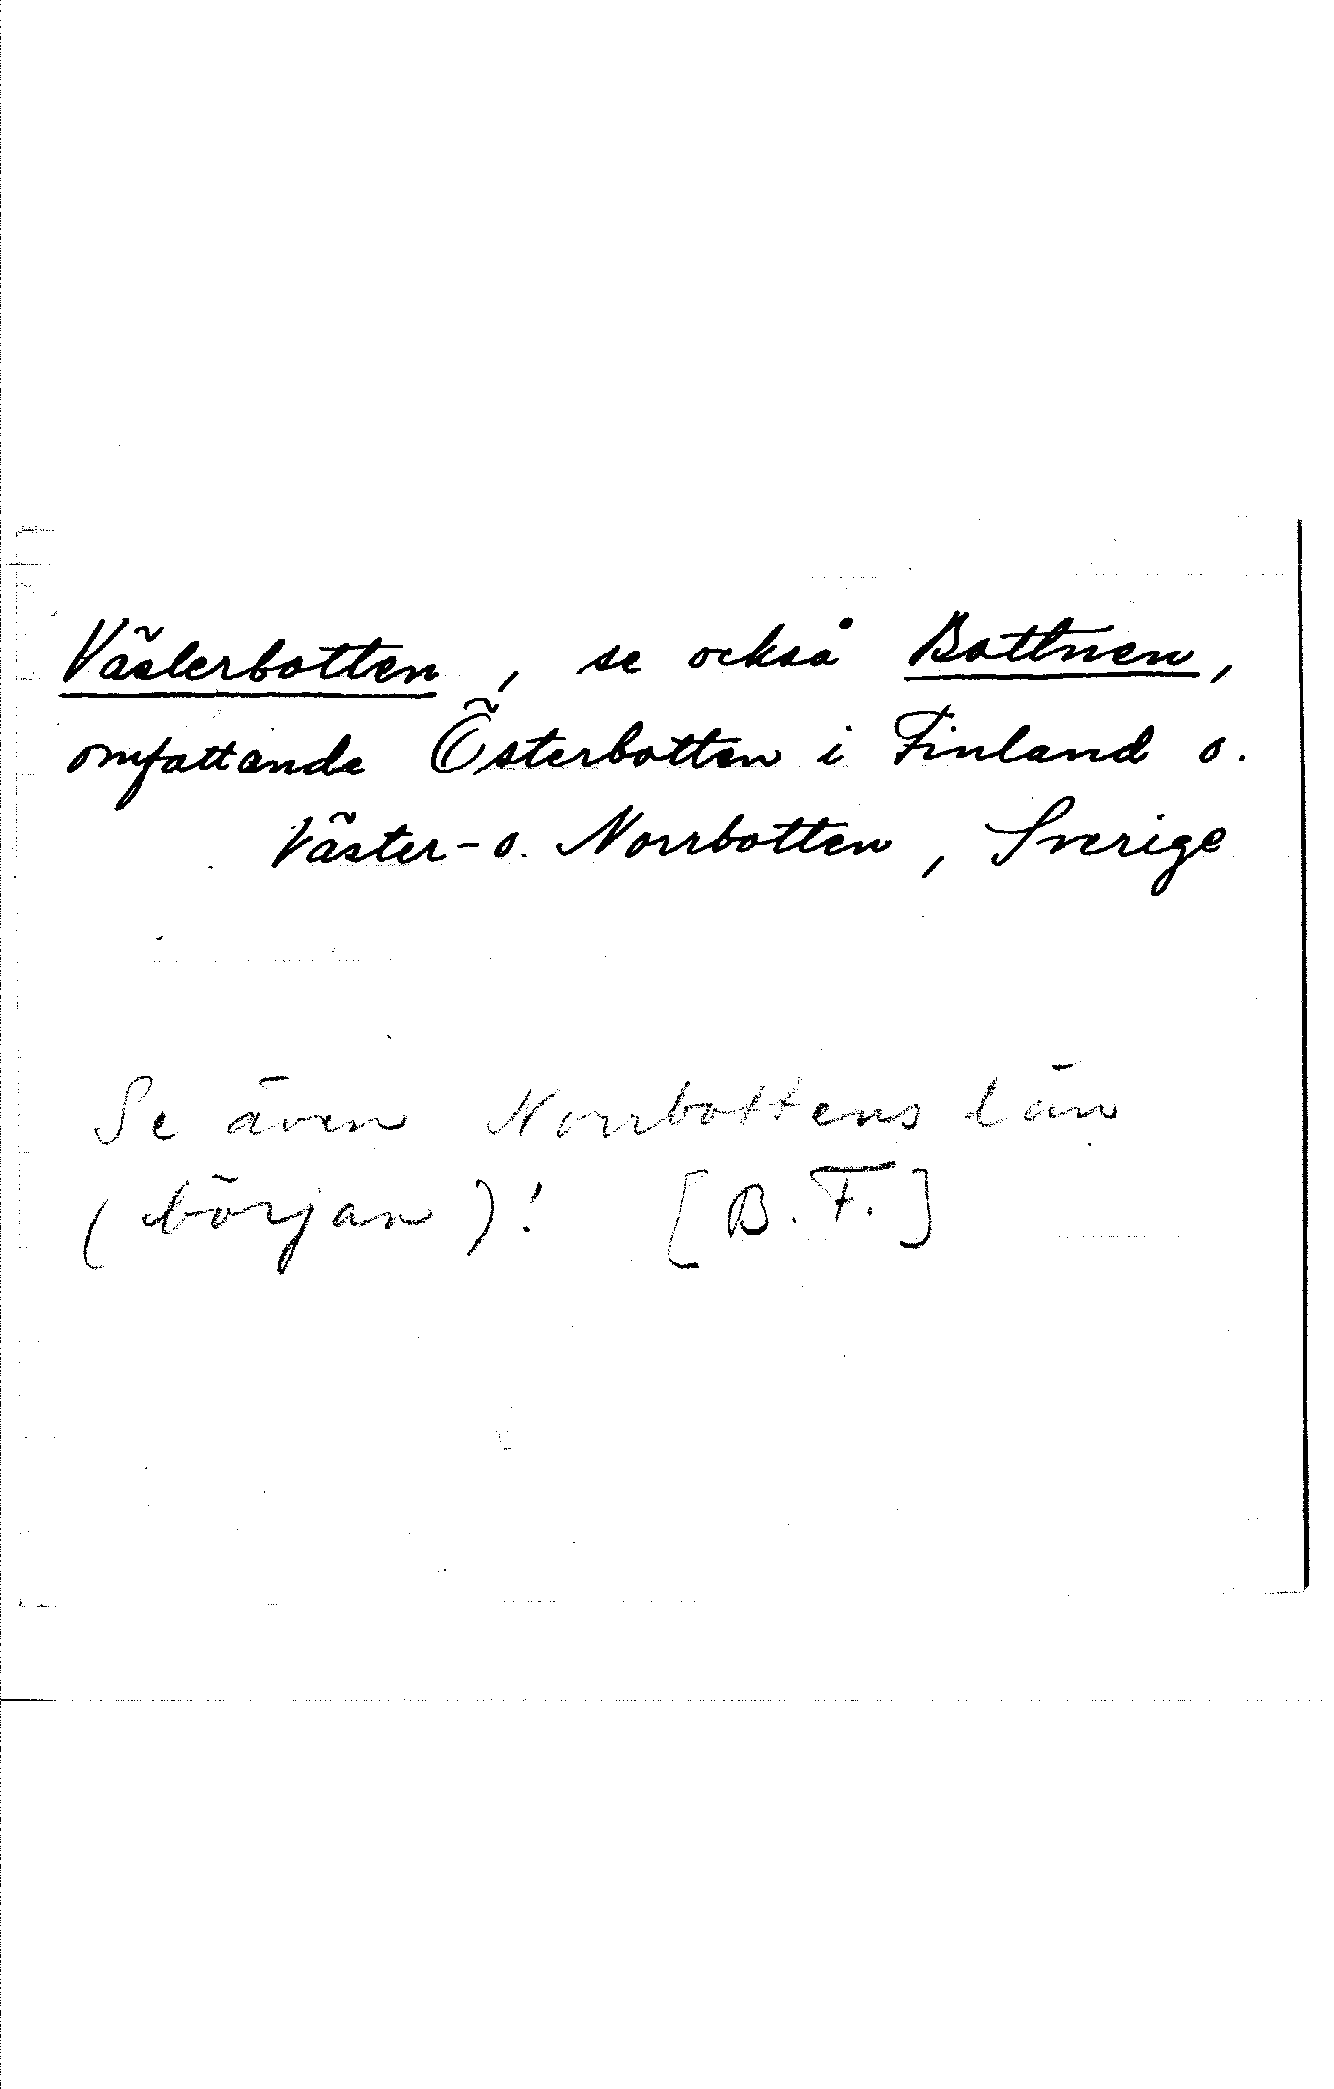 Västerbotten, se också Bottnen,
omfattande Österbotten i Finland o.
Väster- o. Norrbotten, Sverige
Se även Norrbottens län
(början)! [B. F.]